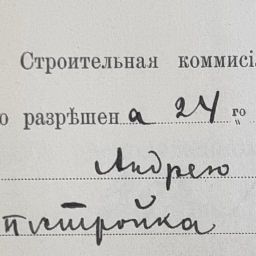 Строительная коммисі
о разрѣшена 24 го
Андрею
пістройка